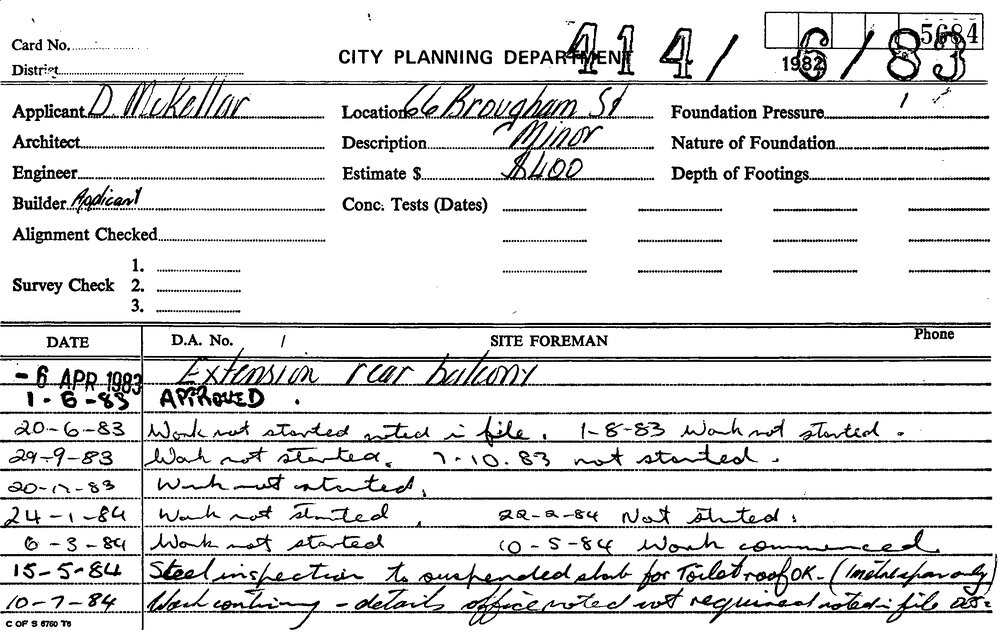 Card No.
5684
CITY PLANNING DEPARTMENT 414/6/83
District
1982
Applicant D. McKellar Location 66 Brougham St Foundation Pressure
Architect Description Minor Nature of Foundation
Engineer Estimate $ $400 Depth of Footings
Builder Applicant Conc. Tests (Dates)
Alignment Checked
1.
Survey Check 2.
3.
DATE D.A. No. / SITE FOREMAN Phone
- 6 APR 1983 Extension rear balcony
1-6-83 APPROVED .
20-6-83 Work not started noted i file. 1-8-83 Work not started.
29-9-83 Work not started. 7.10.83 not started.
Work not started.
24-1-84 Work not started. 22-2-84 Not started.
6-3-84 Work not started 10-5-84 Work commenced.
15-5-84 Steel inspection to suspended slab for Toilet roof OK- (1 metre span only)
10-7-84 Work continuing - details office noted not required noted i file
C OF S 6760 T6